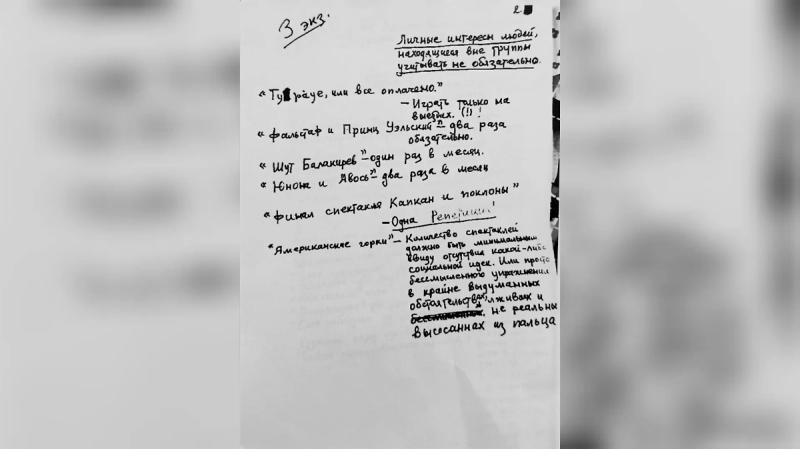 3 экз.
2.
Личные интересы людей,
находящиеся вне группы
учитывать не обязательно.
"Ту рауе, или все оплачено."
— Играть только на
выездах. (!) !
"Фальстаф и Принц Уэльский" — два раза
обязательно.
"Шут Балакирев" — один раз в месяц.
"Юнона и Авось" — два раза в месяц
"Финал спектакля Капкан и поклоны"
— Одна Репетиция!
"Американские горки" — Количество спектаклей
должно быть минимальным
ввиду отсутствия какой-либо
социальной идеи. Или просто
бессмысленного упражнения
в крайне выдуманных
обстоятельствах, лживых и
не реальны
высосаннах из пальца